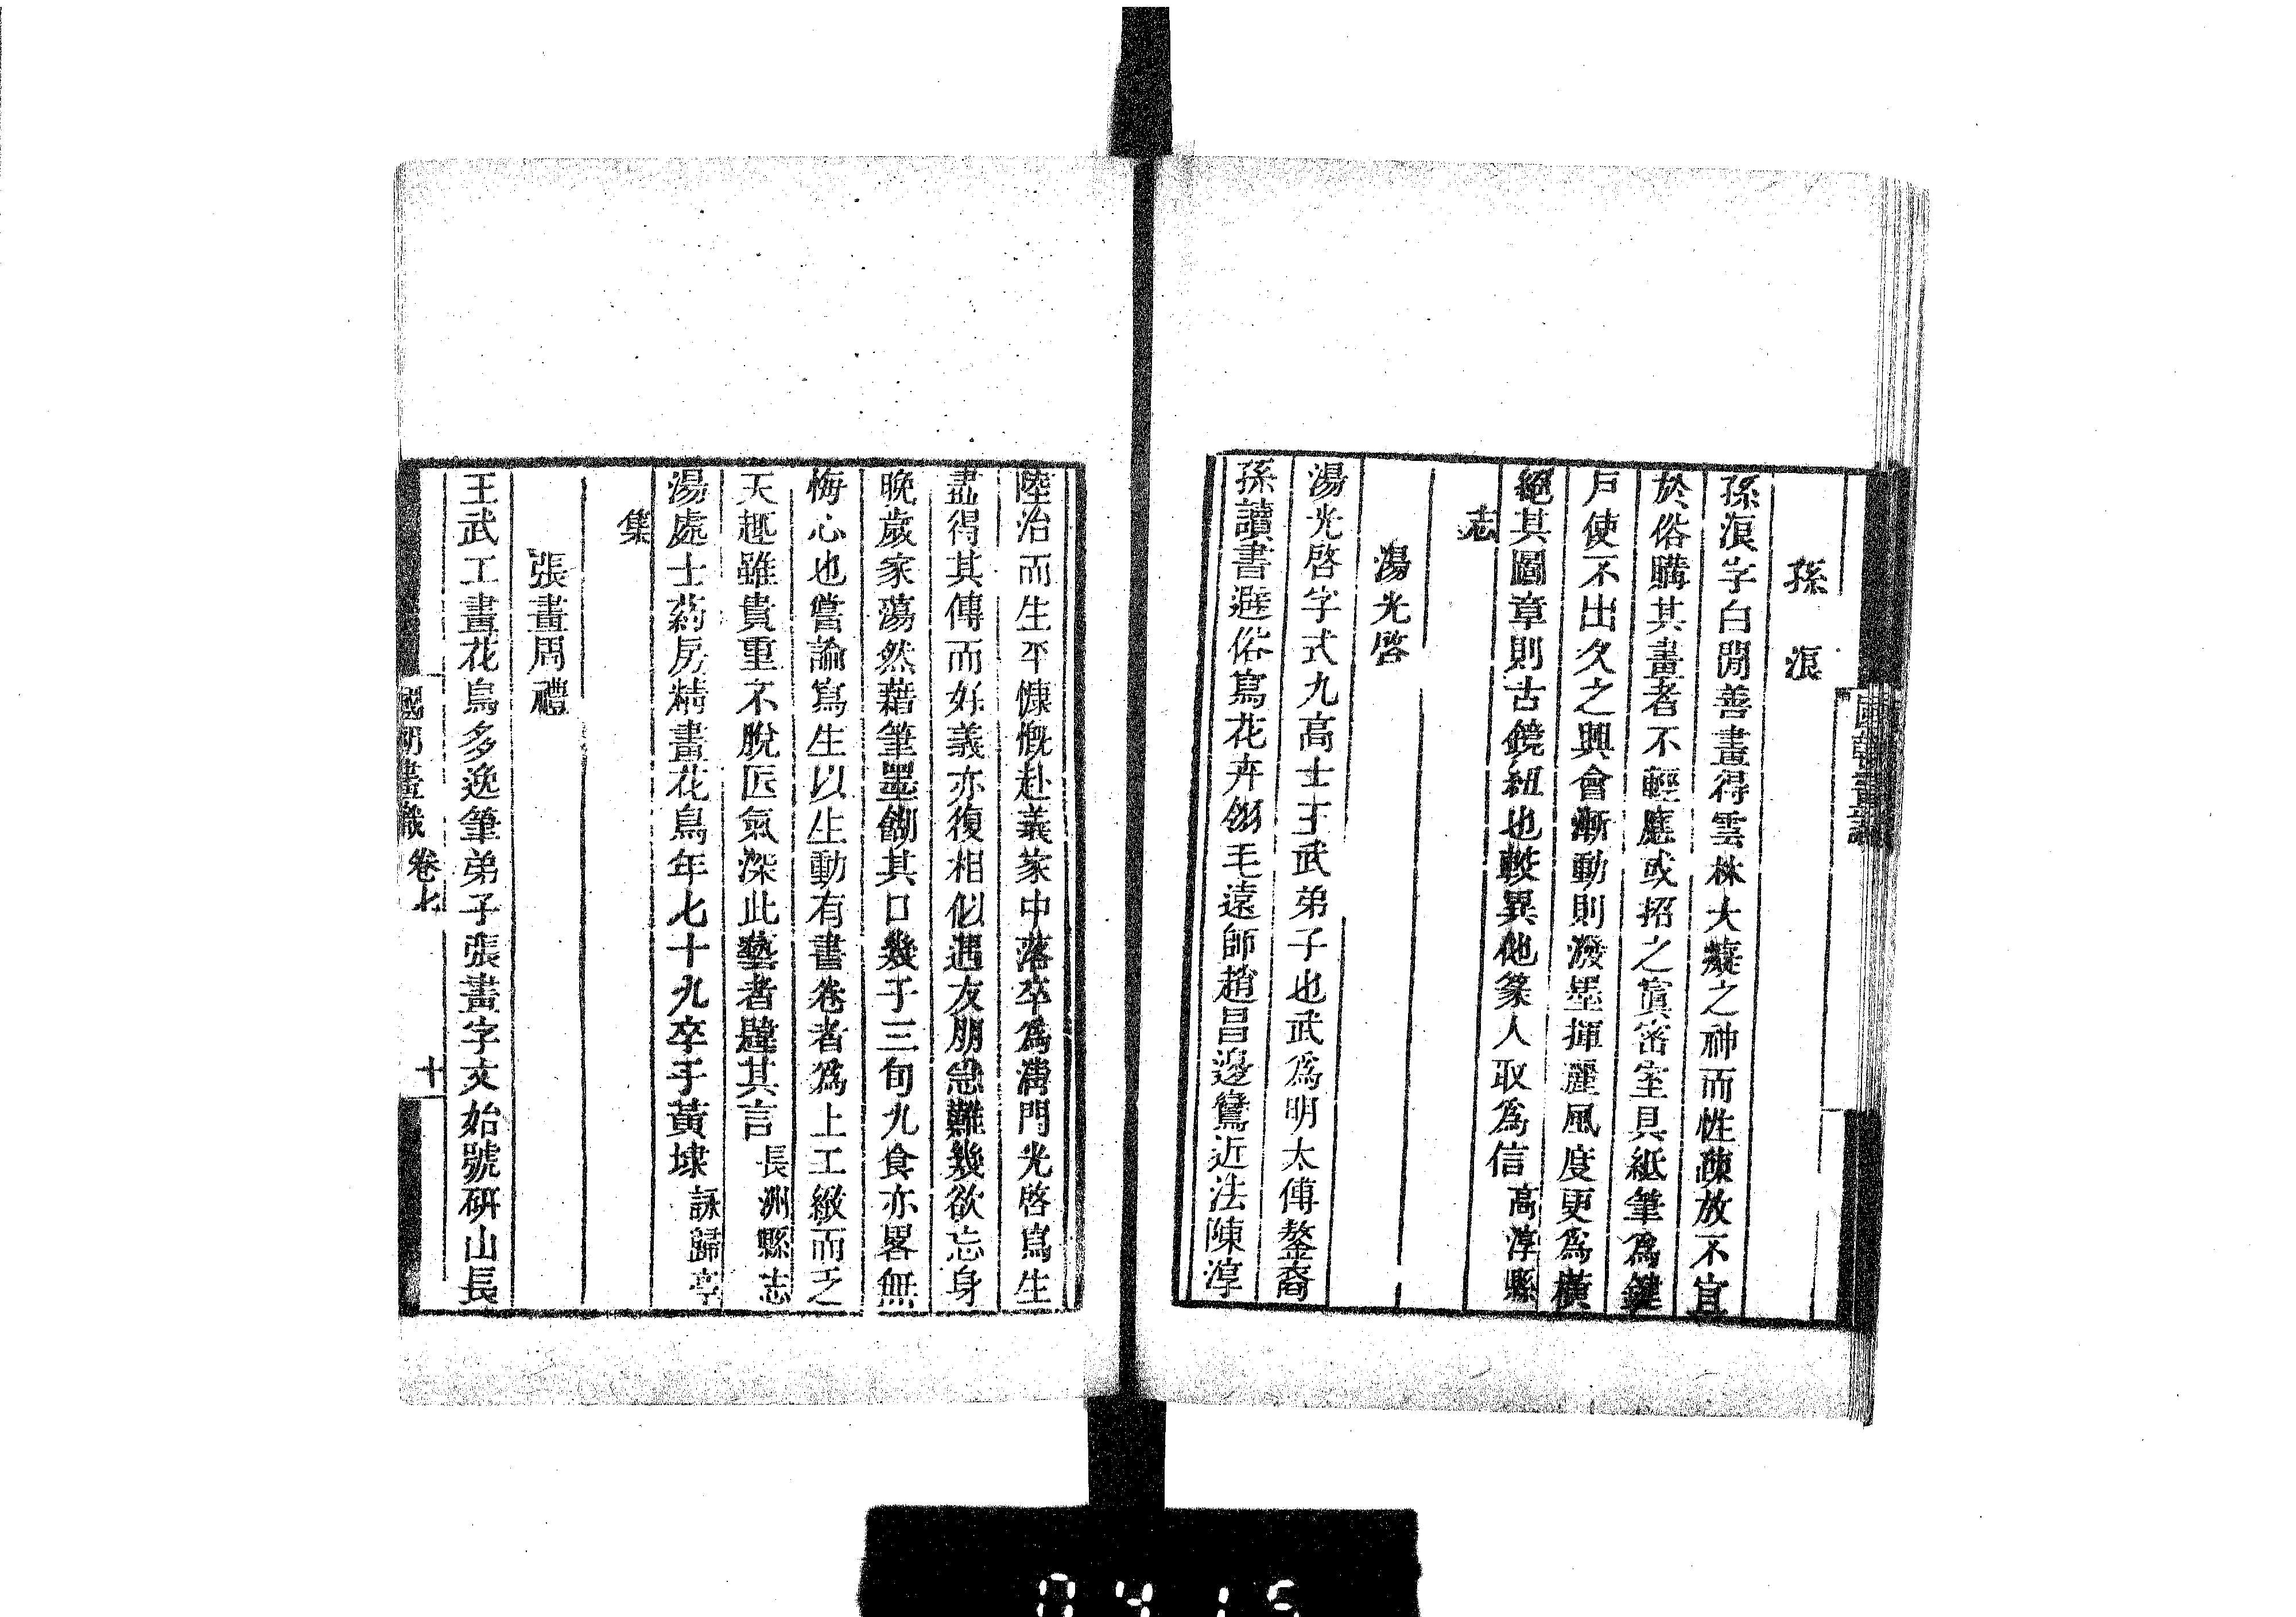 孫㳖
孫㳖字白閒善畫得雲林大癡之神而性踈放不宜
於俗購其畫者不輕應或招之寘密室具紙筆爲鍵
戸使不出久之興會漸動則潑墨揮麗風度更爲橫
絕其圖章則古鏡紐也較異他篆人取爲信高淳縣
志
湯光啓
湯光啓字式九高士王武弟子也武爲明太傅鏊裔
孫讀書避俗寫花卉翎毛遠師趙昌邊鸞近法陳淳
陸治而生平慷慨赴義家中落卒爲溝門光啓寫生
盡得其傳而好義亦復相似遇友朋急難幾欲忘身
晩歲家蕩然藉筆墨餬其口幾于三旬九食亦畧無
悔心也嘗論寫生以生動有書卷者爲上工緻而乏
天趣雖貴重不脫匠氣深此藝者韙其言長洲縣志
湯處士葯房精畫花鳥年七十九卒于黃埭詠歸亭
集
張畫周禮
王武工畫花鳥多逸筆弟子張畫字文始號硏山長
國朝畫識 卷七 十一